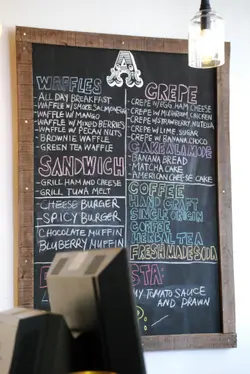 A
WAFFLES
- ALL DAY BREAKFAST
- WAFFLE W/ SMOKE SALMON
- WAFFLE W/ MANGO
- WAFFLE W/ MIXED BERRIES
- WAFFLE W/ PECAN NUTS
- BROWNIE WAFFLE
- GREEN TEA WAFFLE
SANDWICH
- GRILL HAM AND CHEESE
- GRILL TUNA MELT
- CHEESE BURGER
- SPICY BURGER
CHOCOLATE MUFFIN
BLUEBERRY MUFFIN
CREPE
- CREPE W/ EGG HAM CHEESE
- CREPE W/ CHICKEN
- CREPE W/ STRAWBERRY NUTELLA
- CREPE W/ LIME, SUGAR
- CREPE W/ BANANA, CHOCO
CAKE ALAMODE
- BANANA BREAD
- MATCHA CAKE
- AMERICAN CHEESE CAKE
COFFEE
HAND CRAFT
SINGLE ORIGIN
COFFEE
HERBAL TEA
FRESH MADE SODA
STA:
MY TOMATO SAUCE
AND PRAWN